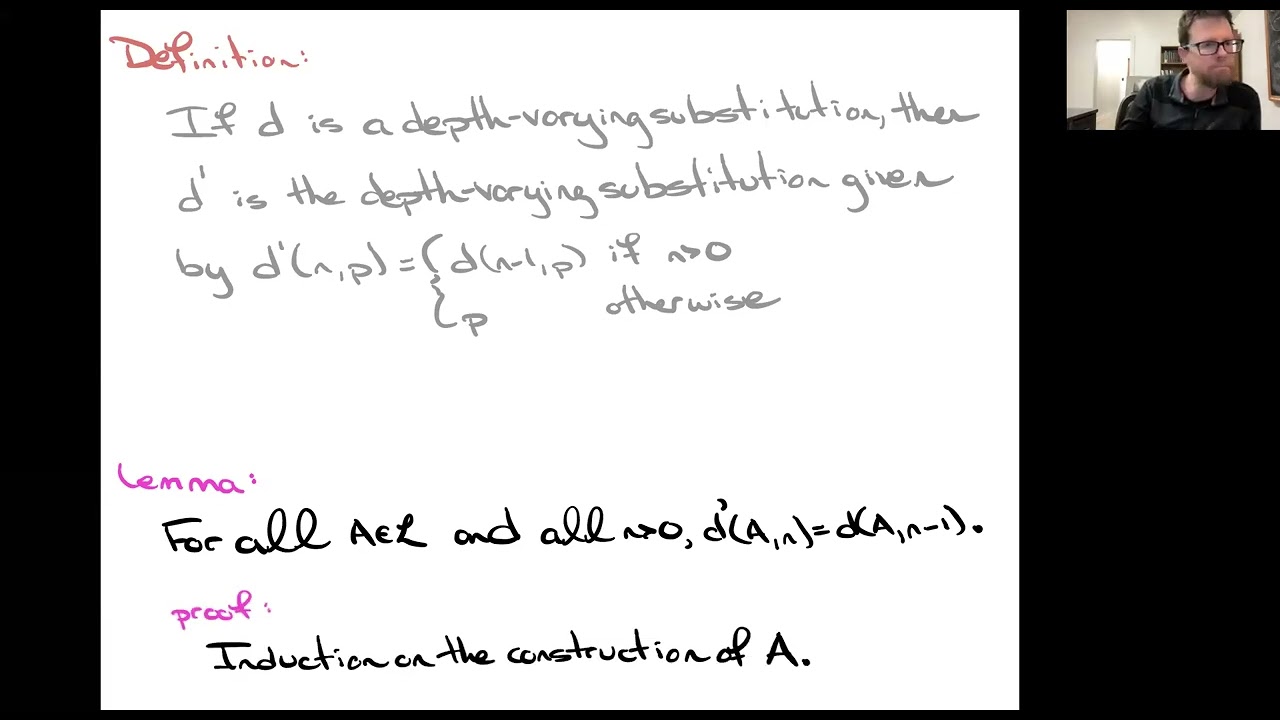 Definition:
If d is a depth-varying substitution, then
d' is the depth-varying substitution given
by d'(n,p) = { d(n-1,p) if n>0
p otherwise
Lemma:
For all A∈L and all n>0, d'(A,n)=d(A,n-1).
proof:
Induction on the construction of A.